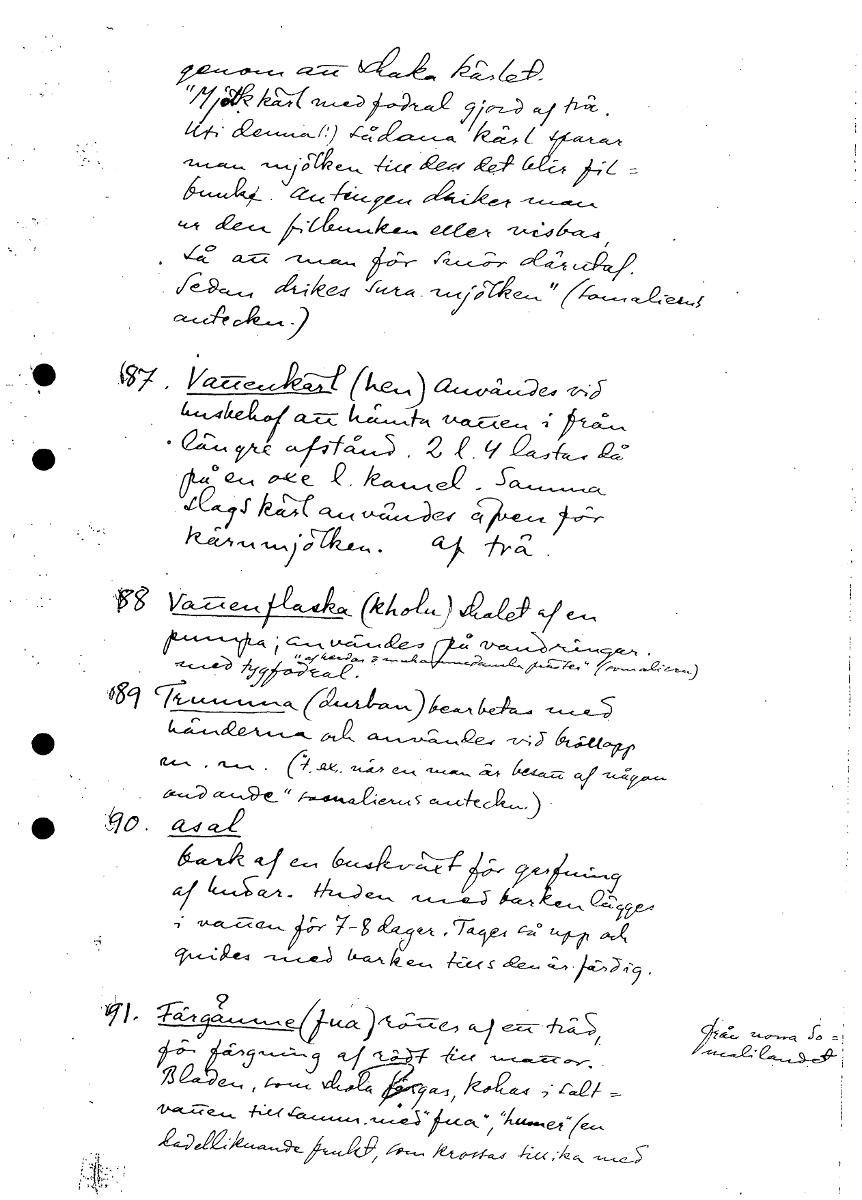 genom att skaka kärlet.
"Mjölkkärl med fodral gjord af trä.
Uti denna(!) sådana kärl sparar
man mjölken till dess det blir fil=
bunke. Antingen driker man
ur den filbunken eller visbas,
så att man för smör därutaf.
Sedan drikes sura mjölken" (somalierns
anteckn.)
87. Vattenkärl (hen) Användes vid
husbehof att hämta vatten i från
längre afstånd. 2 l. 4 lastas då
på en oxe l. kamel. Samma
slags kärl användes äfven för
kärnmjölken. af trä.
88 Vattenflaska (kholu) skalet af en
pumpa; användes på vandringar.
"af muhammedanska präster" (somaliern)
med tygfodral.
89 Trumma (durban) bearbetas med
händerna och användes vid bröllopp
m. m. ("t. ex. när en man är besatt af någon
ond ande" somalierns anteckn.)
90. asal
bark af en buskväxt för garfning
af hudar. Huden med barken lägges
i vatten för 7-8 dagar. Tages så upp och
gnides med barken tills den är färdig.
91. Färgämne (fua) rötter af ett träd,
?
för färgning af rödt till mattor.
från norra So=
malilandet
Bladen, som skola färgas, kokas i salt=
vatten tillsamm. med "fua", "humer" (en
dadelliknande frukt, som krossas tillika med